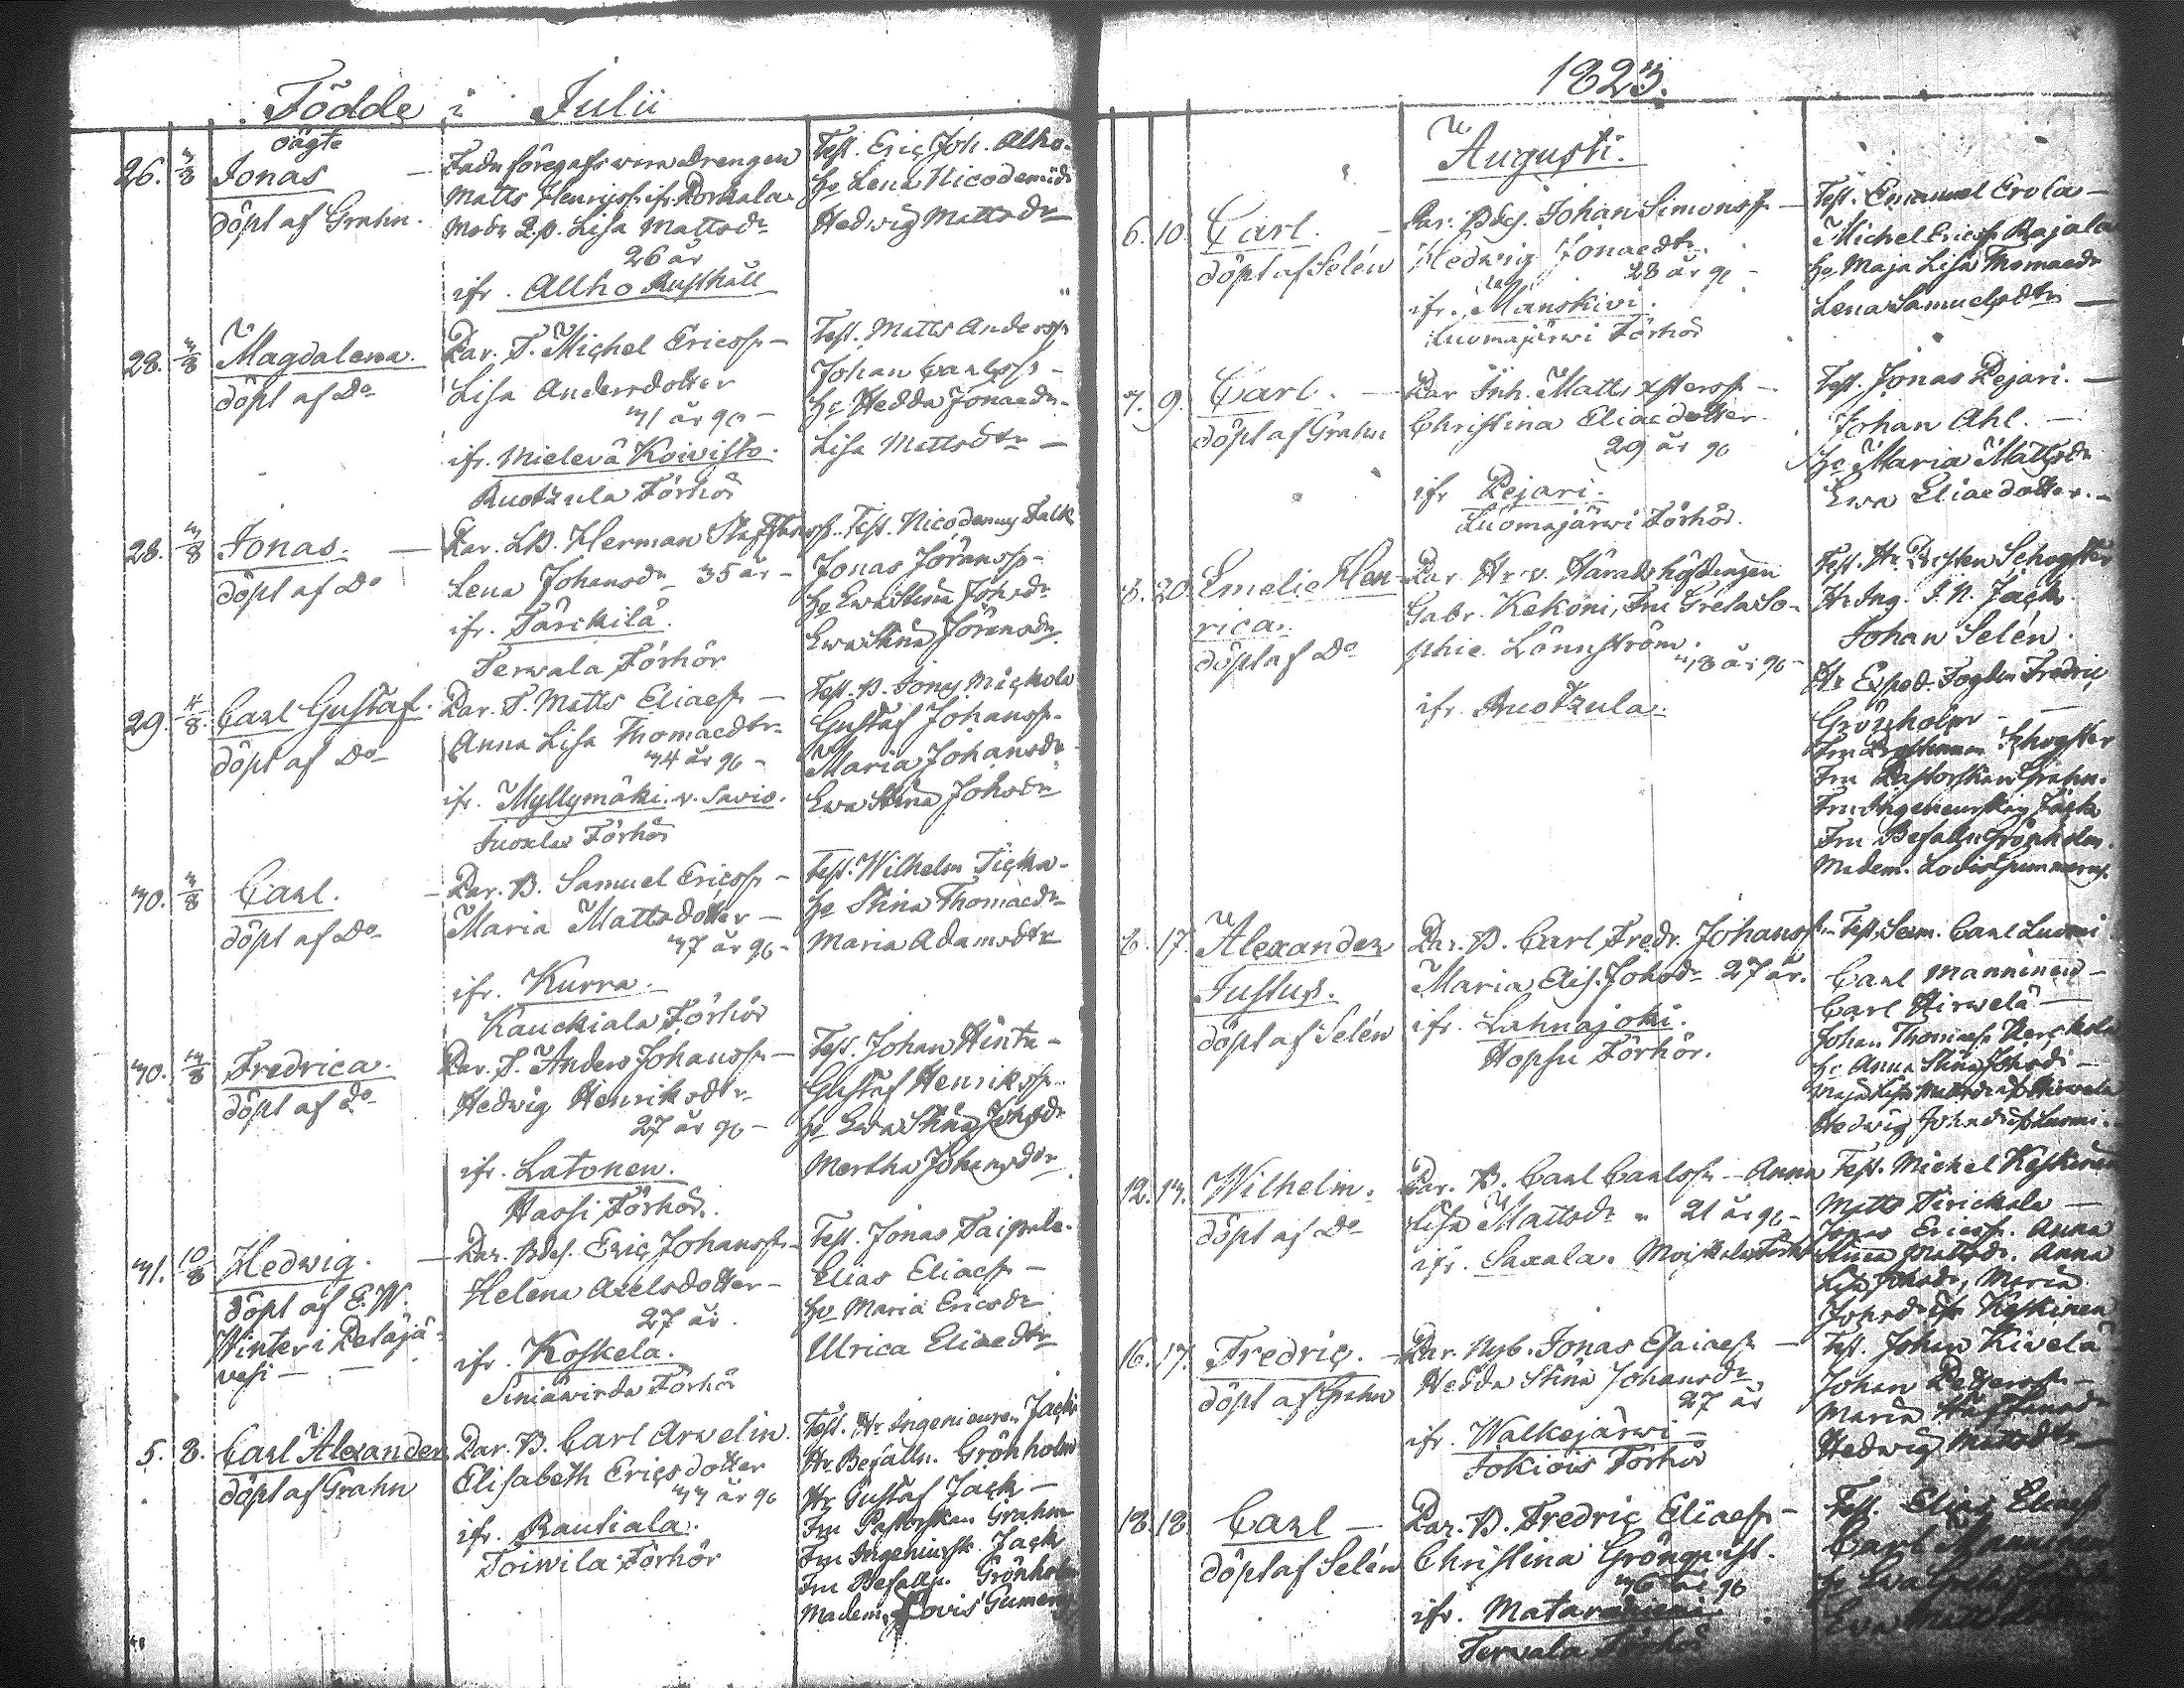 Födde i Julii
oägte
26. 3/8 Jonas
döpt af Grahn.
Fadr föregafs vara Drengen
Matts Henricss. ifr. Porkala
Modr Q.p. Lisa Mattsdr
26 år
ifr. Allho Rusthåll
Test. Eric Joh. Allho.
Hu Lena Nicodemidr
Hedvig Mattsdr
28. 3/8 Magdalena.
döpt af Do
Par. T. Michel Ericss. -
Lisa Andersdotter
31 år
ifr. Mielevä Koivisto.
Ruotzula Förhör
Test. Matts Anderss.
Johan Carlss. -
Hu Hedda Jonaedr.
Lisa Mattsdtr -
28. 3/8 Jonas. -
döpt af Do
Par. Herman Staffanss.
Lena Johansdr 35 år -
ifr. Tärckilä.
Terwala Förhör
Test. Nicodemus Falk
Jonas Jöranss. -
Hu Ewa Stina Johsdr
Ewa Stina Jöransdr.
29. 4/8. Carl Gustaf.
döpt af Do
Par. T. Matts Eliaess. -
Anna Lisa Thomaedtr.
34 år
ifr. Myllymäki. v. Savio.
Förhör
Gustaf Johanss.
Maria Johansdr
Ewa Stina Johsdr
30. 3/8 Carl.
döpt af Do
Par. B. Samuel Ericss. -
Maria Mattsdotter -
37 år
ifr. Kurra.
Kauckiala Förhör
Test. Wilhelm
Hu Stina Thomaedr
Maria Adamsdtr
30. 13/8 Fredrica.
döpt af Do
Par. T. Anders Johanss. -
Hedwig Henriksdtr.
27 år
ifr. Latonen.
Hassi Förhör.
Test. Johan Hinta -
Gustaf Henrikss.
Hu Ewa Stina Johsdr
Mertha Johansdtr
31. 10/8 Hedwig. -
döpt af E. W.
Winter i Pelajä-
vesi -
Par. Bdes. Eric Johanss. -
Helena Axelsdotter -
27 år.
ifr. Koskela.
Förhör
Test. Jonas Taipale.
Elias Eliaess. -
Hu Maria Ericsdr
Ulrica Eliaedtr
5. 8. Carl Alexander
döpt af Grahn
Par. B. Carl Arvelin.
Elisabeth Ericsdotter
33 år
ifr. Rautiala.
Toiwila Förhör
Test. Hr Ingenieuren Jack
Hr Befalln. Grönholm
Hr Gustaf Jack -
Fru Pastorskan Grahn
Fru Jack
Fru Befalln. Grönholm
Madem. Lovis
1823.
Augusti.
6. 10. Carl. -
döpt af Selén
Par. Bdes. Johan Simonss. -
Hedwig Jonaedtr.
28 år
ifr. Manskivi.
Luomajärwi Förhör
Test. Emanuel Erola -
Michel Ericss. Rajala
Hu Maja Lisa Thomaedr
Lena Samuelsdtr -
7. 9. Carl. -
döpt af Grahn
Par Inh. Matts -
Christina Eliaedotter
29 år
ifr Pejari.
Luomajärwi Förhör.
Test. Jonas Pejari. -
Johan Ahl. -
Hu Maria Mattsdr
Ewa Eliaedotter. -
8. 20. Emelie Hen-
rica.
döpt af Do
Par. Hr v. Häradshöfdingen
Gabr. Kekoni, Fru Greta So-
phie Lönnström.
38 år
ifr. Ruotzula.
Hr Ing. J. N. Jack.
Johan Selén.
Hr Exped. Fogden Fredric
Grönholm -
Fru Pastorskan Grahn.
Fru Jack
Fru Befalln. Grönholm.
Madem. Lovis
8. 17. Alexander
Justus.
döpt af Selén
Par. B. Carl Fredr. Johanss.
Maria Elis. Johsdr 27 år.
ifr. Lahnajoki.
Hopsu Förhör.
Test. Carl Luomi
Carl Manninen -
Carl Hirwelä -
Johan Thomaess.
Hu Anna Stina Johsdr -
12. 14. Wilhelm.
döpt af Do
Par. B. Carl Carlss. - Anna
Lisa Mattsdr 21 år
ifr. Saxala.
Test. Michel Keskinen
Matts -
Jonas Ericss. Anna
Stina Mattsdr. Anna
Lisa Johsdr, Maria
Johsdr ifr Keskinen
16. 17. Fredric. -
döpt af Grahn
Par. Nyb. Jonas Esaiaess. -
Hedda Stina Johansdr
27 år
ifr. Walkejärwi -
Jokiois Förhör
Test. Johan Kivelä
Johan Petterss. -
Maria
Hedwig Mattsdtr
18. 18 Carl -
döpt af Selén
Par. B. Fredric Eliaess. -
Christina Grönqvist.
36 år
ifr.
Terwala Förhör
Test. Elias Eliaess.
Carl